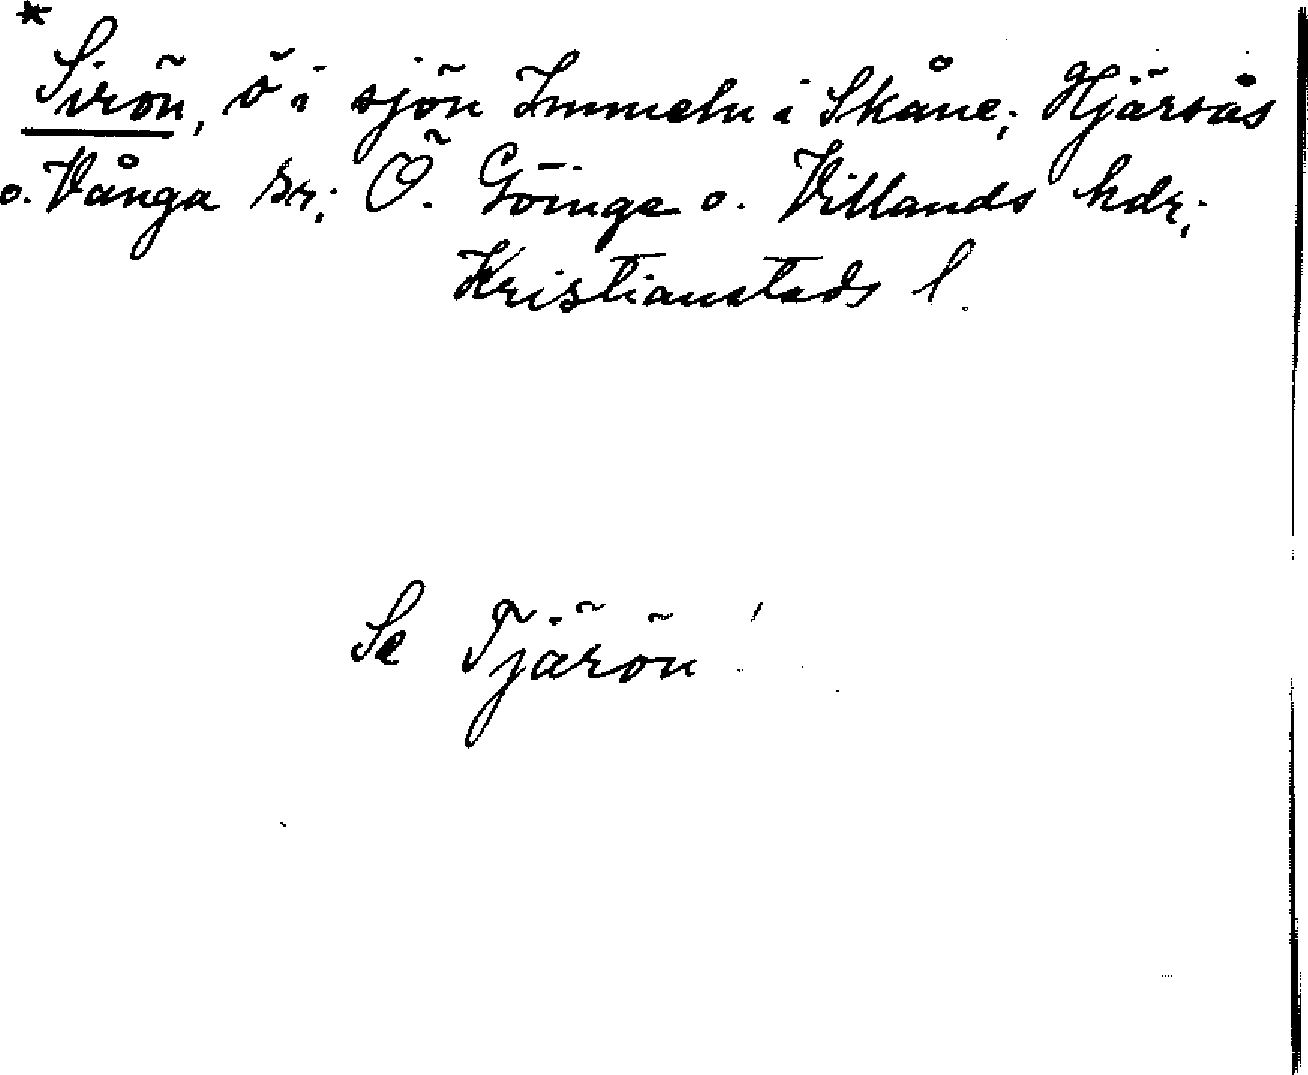 * Sirön, ö i sjön Immeln i Skåne; Hjärsås
o. Vånga sr; Ö. Göinge o. Villands hdr;
Kristianstads l.
Se Tjärön!